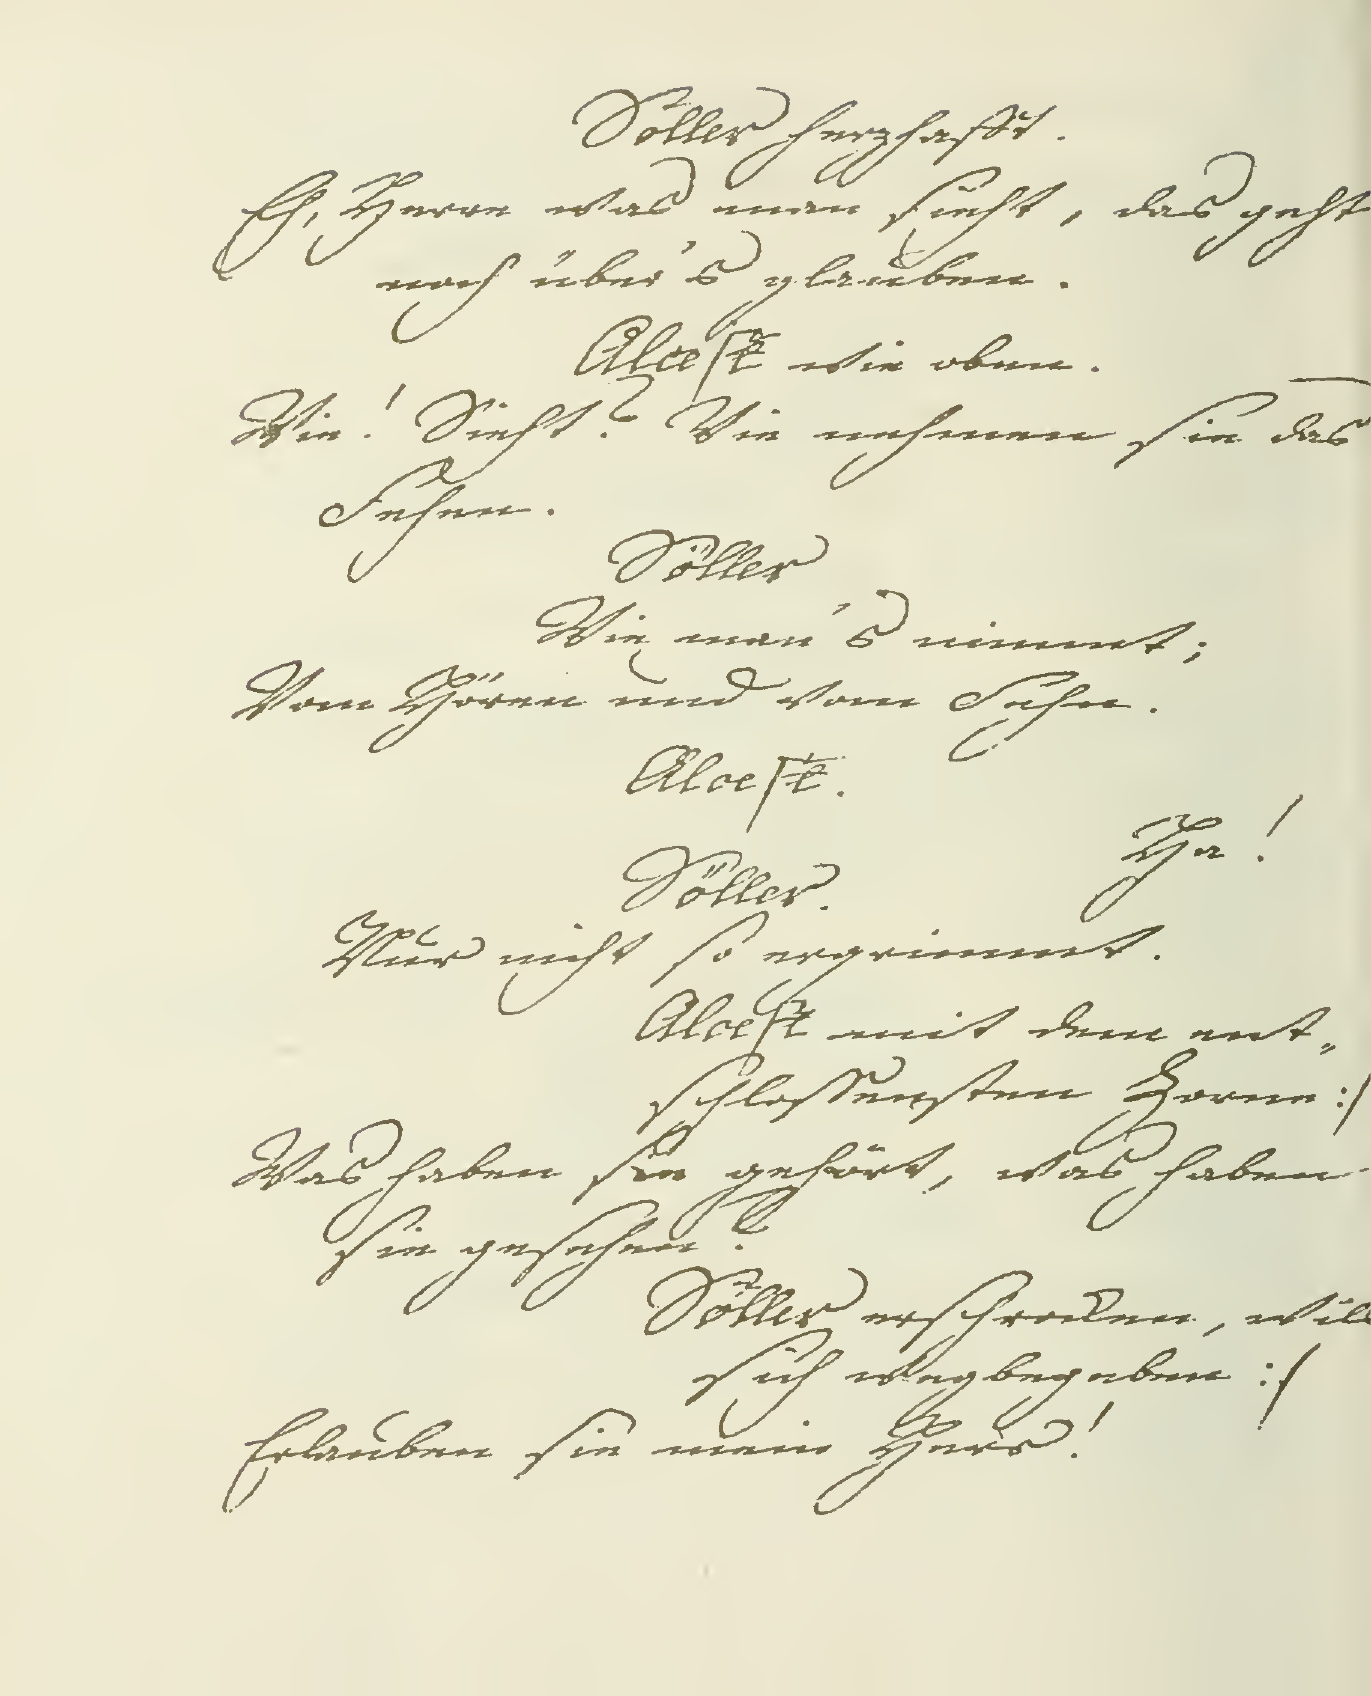 Söller herzhafft.
Eh, Herre was man sieht, das geht
noch über's glauben.
Alcest wie oben.
Wie! Sieht? Wie nehmen sie das
Sehen.
Söller
Wie man's nimmt;
Vom Hören und vom Sehn.
Alcest.
Ha!
Söller.
Nur nicht so ergrimmt.
Alcest mit dem ent„
schlossensten Zorne:/
Was haben sie gehört, was haben
sie gesehen?
Söller erschrocken, will
sich wegbegeben:/
Erlauben sie mein Herr!